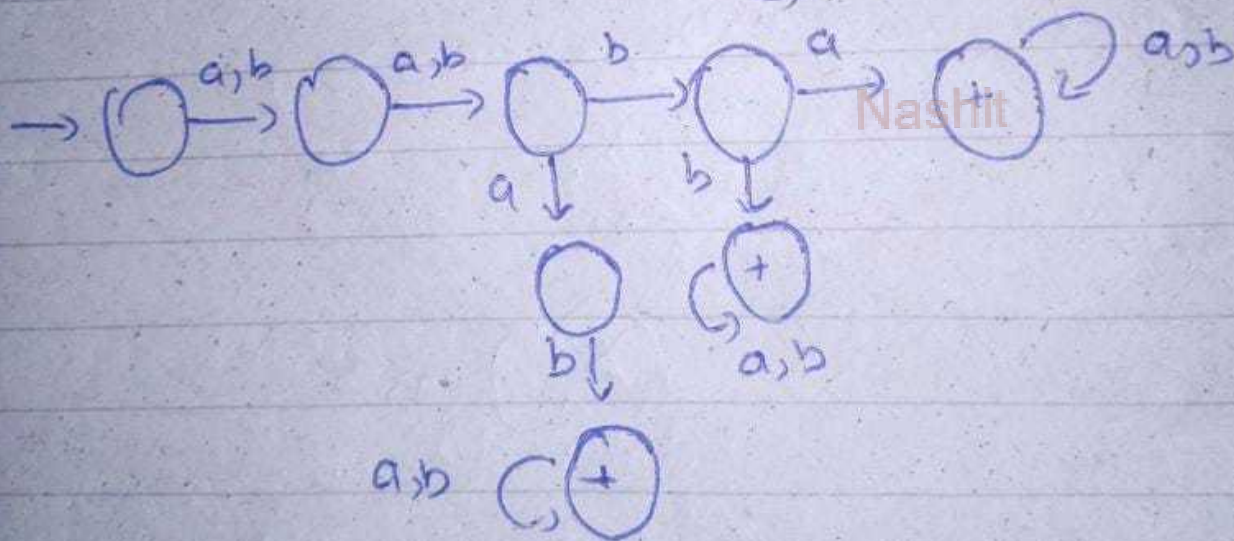 a,b a,b b a a,b
Nashit
+
a b
+
b a,b
a,b +